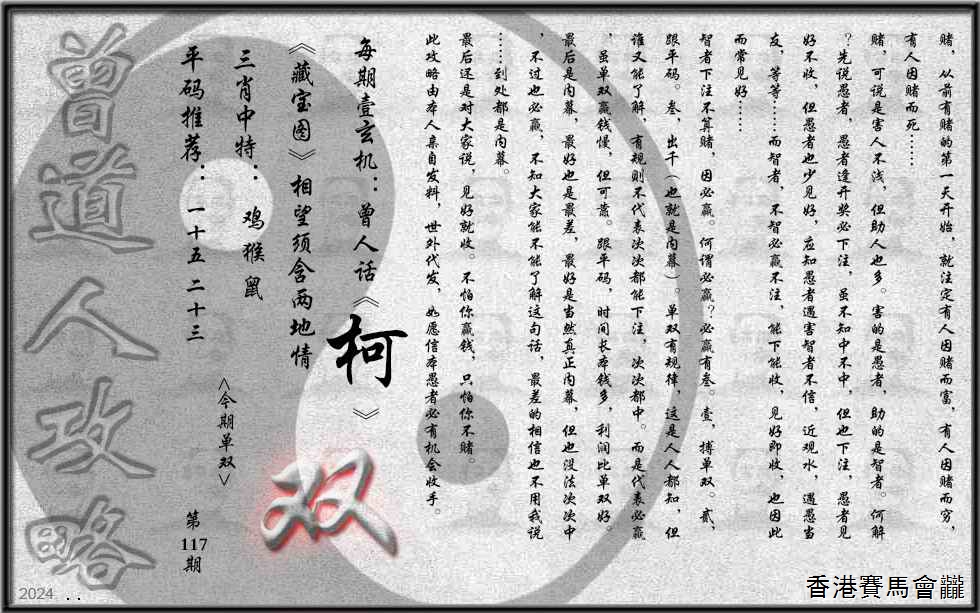 赌，从前有赌的第一天开始，就注定有人因赌而富，有人因赌而穷，
有人因赌而死……
赌，可说是害人不浅，但助人也多。害的是愚者，助的是智者。何解
？先说愚者，愚者逢开奖必下注，虽不知中不中，但也下注，愚者见
好不收，但愚者也少见好，应知愚者遇害智者不信，近观水，遇愚当
友，等等……而智者，不智必赢不注，能下能收，见好即收，也因此
而常见好……
智者下注不算赌，因必赢。何谓必赢？必赢有叁。壹，搏单双。贰，
跟平码。叁，出千（也就是内幕）。单双有规律，这是人人都知，但
谁又能了解，有规则不代表次次都能下注，次次都中。而是代表必赢
，虽单双赢钱慢，但可靠。跟平码，时间长本钱多，利润比单双好。
最后是内幕，最好也是最差，最好是当然真正内幕，但也没法次次中
，不过也必赢，不知大家能不能了解这句话，最差的相信也不用我说
……到处都是内幕。
最后还是对大家说，见好就收。不怕你赢钱，只怕你不赌。
此攻略由本人亲自发料，世外代发，如愿信本愚者必有机会收手。
每期壹玄机：曾人话《柯》
《藏宝图》相望须含两地情
三肖中特：鸡猴鼠
平码推荐：一十五 二十三
<今期单双>
双
第
117
期
曾道人攻略
2024
香港賽馬會